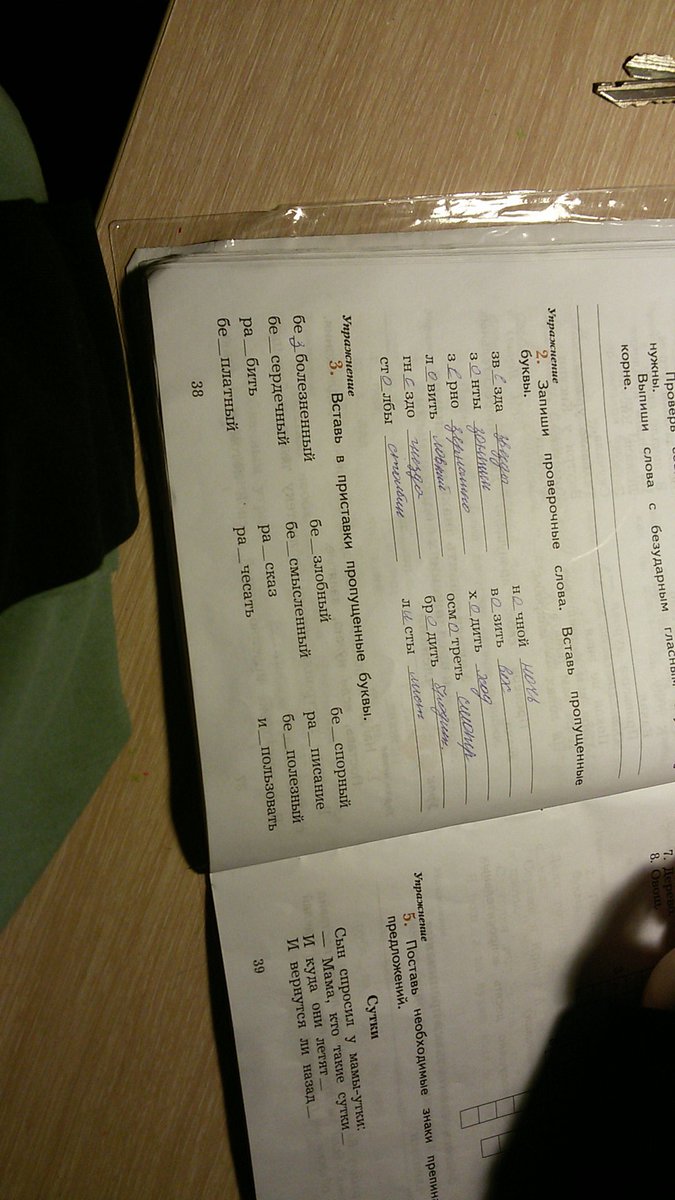 Проверь
нужны.
Выпиши слова с безударным гласным
корне.
Упражнение 2. Запиши проверочные слова. Вставь пропущенные
буквы.
зв е зда звезды н о чной ночь
з о нты зонтик в о зить воз
з е рно зернышко х о дить ход
л о вить ловкий осм о треть смотр
гн е здо гнездо бр о дить бродит
ст о лбы столбик л и сты лист
Упражнение 3. Вставь в приставки пропущенные буквы.
бе з болезненный бе_злобный бе_спорный
бе_сердечный бе_смысленный ра_писание
ра_бить ра_сказ бе_полезный
бе_платный ра_чесать и_пользовать
38
7. Дерево
8. Овощ.
Упражнение 5. Поставь необходимые знаки
предложений.
Сутки
Сын спросил у мамы-утки:
— Мама, кто такие сутки_
И куда они летят_
И вернутся ли назад_
39